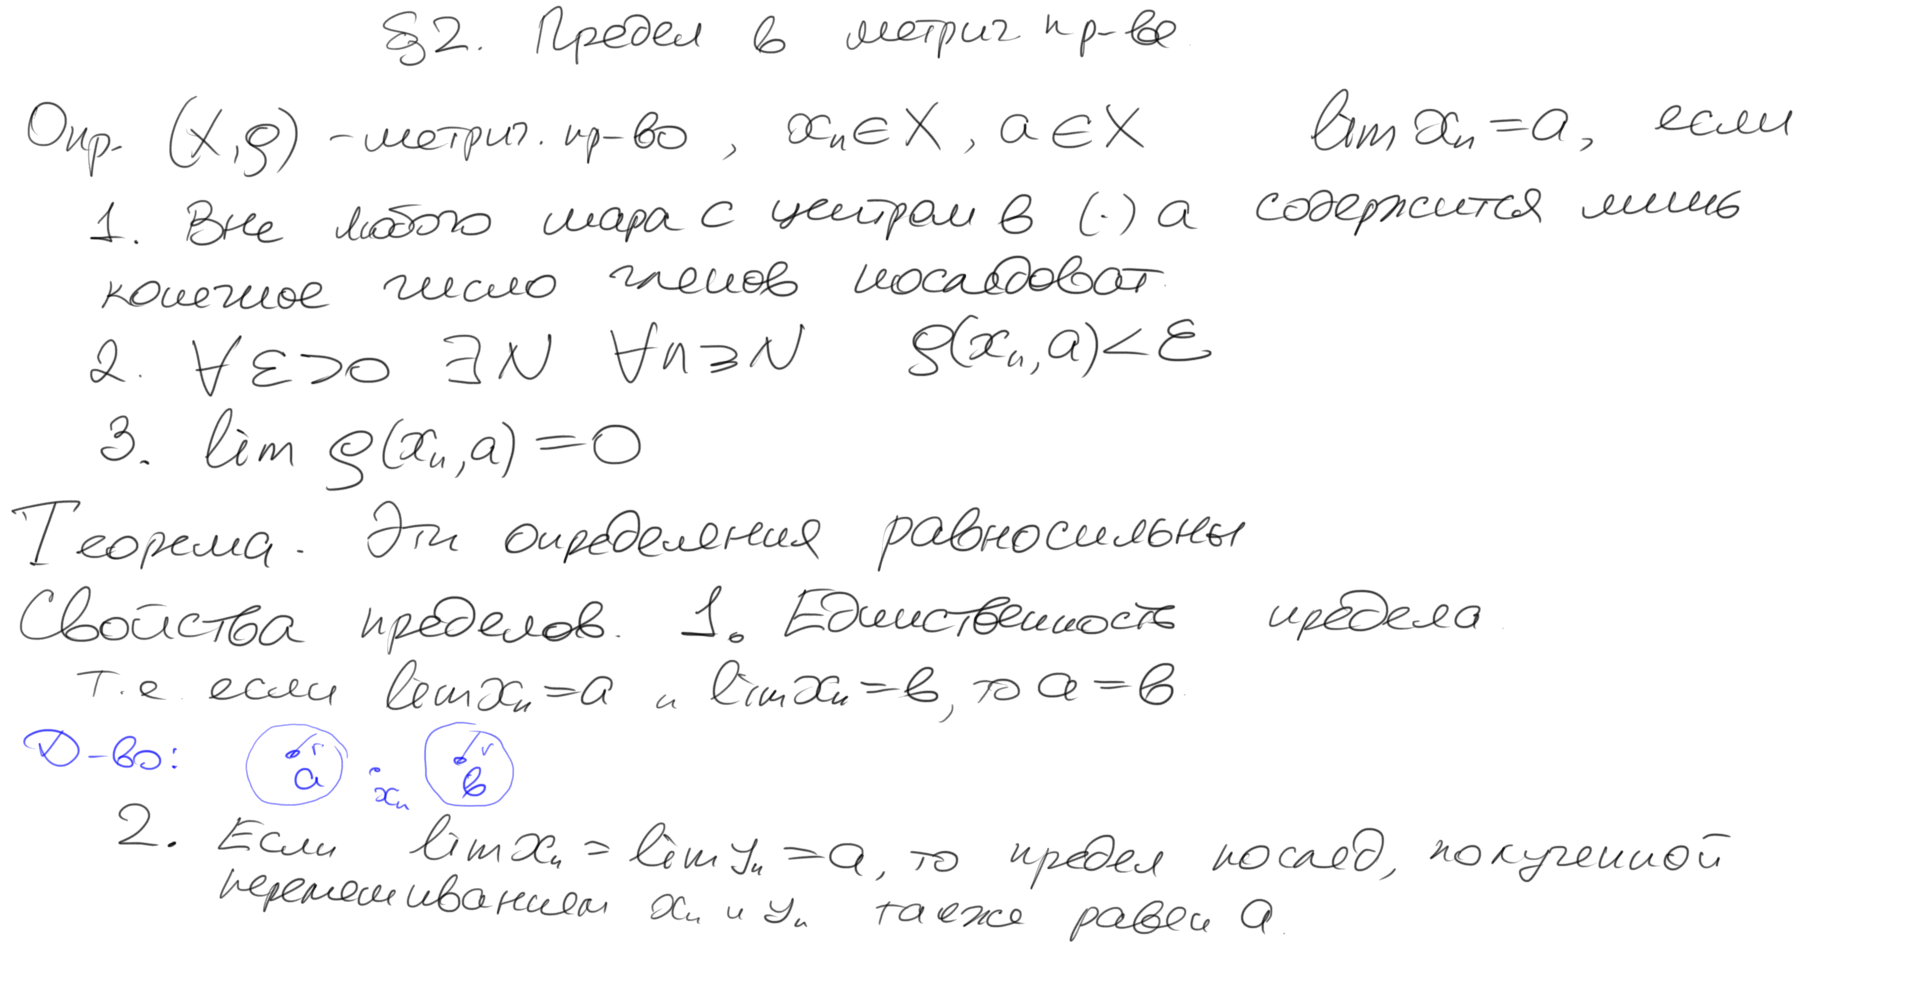 §2. Предел в метрич пр-ве
Опр. (X,ρ) – метрич. пр-во, xₙ∈X, a∈X lim xₙ = a, если
1. Вне любого шара с центром в (·) a содержится лишь
конечное число членов последоват.
2. ∀ε>0 ∃N ∀n⩾N ρ(xₙ,a)<ε
3. lim ρ(xₙ,a)=0
Теорема. Эти определения равносильны
Свойства пределов. 1. Единственность предела
т.е. если lim xₙ = a и lim xₙ = b, то a = b
Д-во: r a xₙ r b
2. Если lim xₙ = lim yₙ = a, то предел послед, полученной
перемешиванием xₙ и yₙ также равен a.